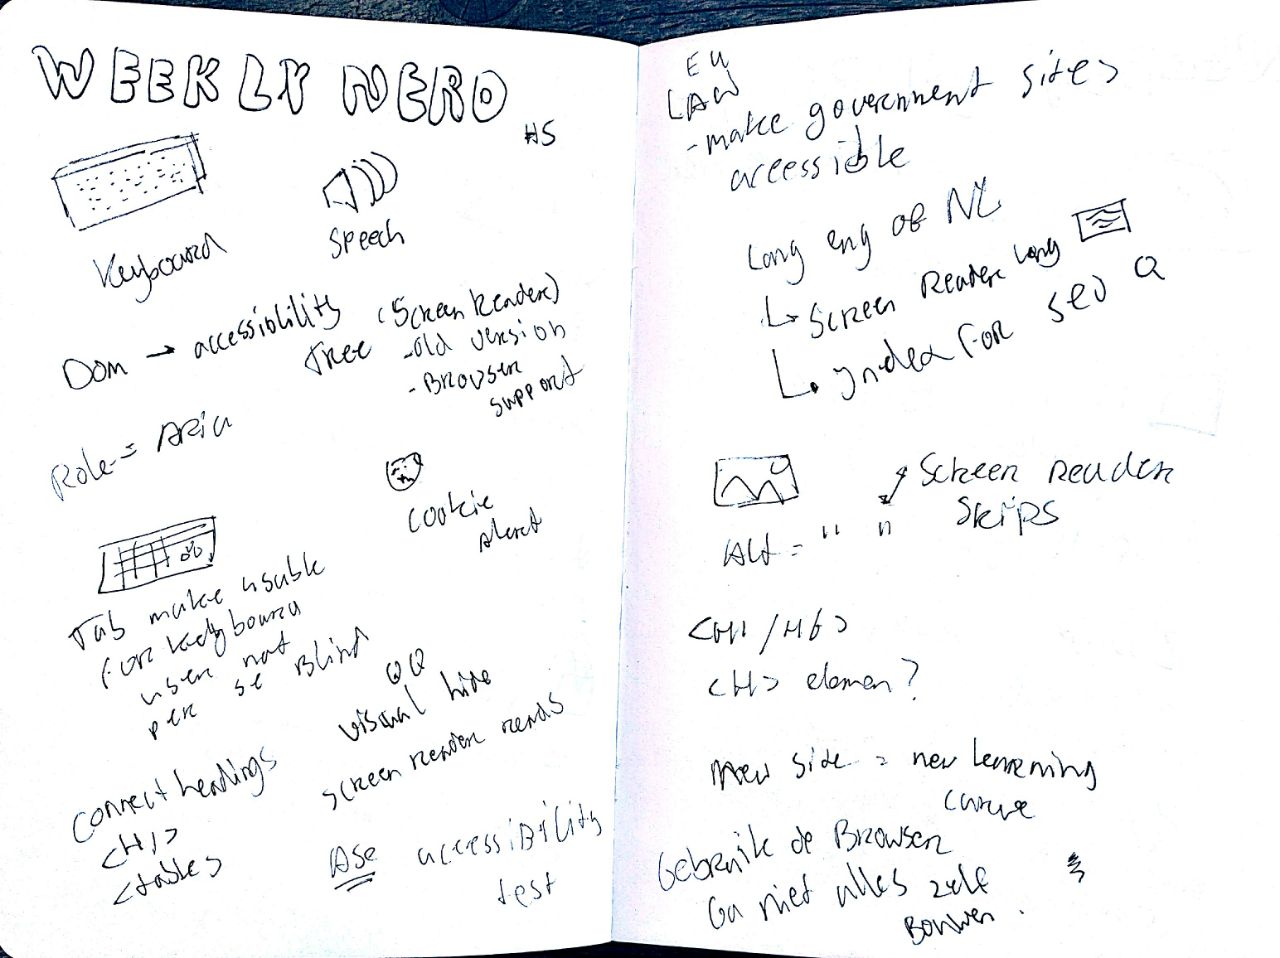 WEEKLY NERD
#5
Keyboard
Speech
Dom → accessiblility
Tree
(Screen Reader)
-old version
-Browser
support
Role = Aria
Cookie
Alert
Tab make usable
for keyboard
user not
per se Blind
visual hide
screen reader reads
Connect headings
<H1>
<tables
accessibility
test
EU
LAW
-make government sites
accessible
Lang eng of NL
↳ Screen Reader Lang
↳ yndex for SEO
Alt = " "
Screen reader
Skips
<H1/H6>
<H> elemen?
new learning
curve
Gebruik de Browser
Ga niet alles zelf
Bouwen.